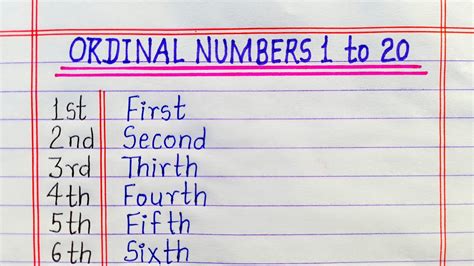 ORDINAL NUMBERS 1 to 20
1st First
2nd Second
3rd Thirth
4th Fourth
5th Fifth
6th Sixth